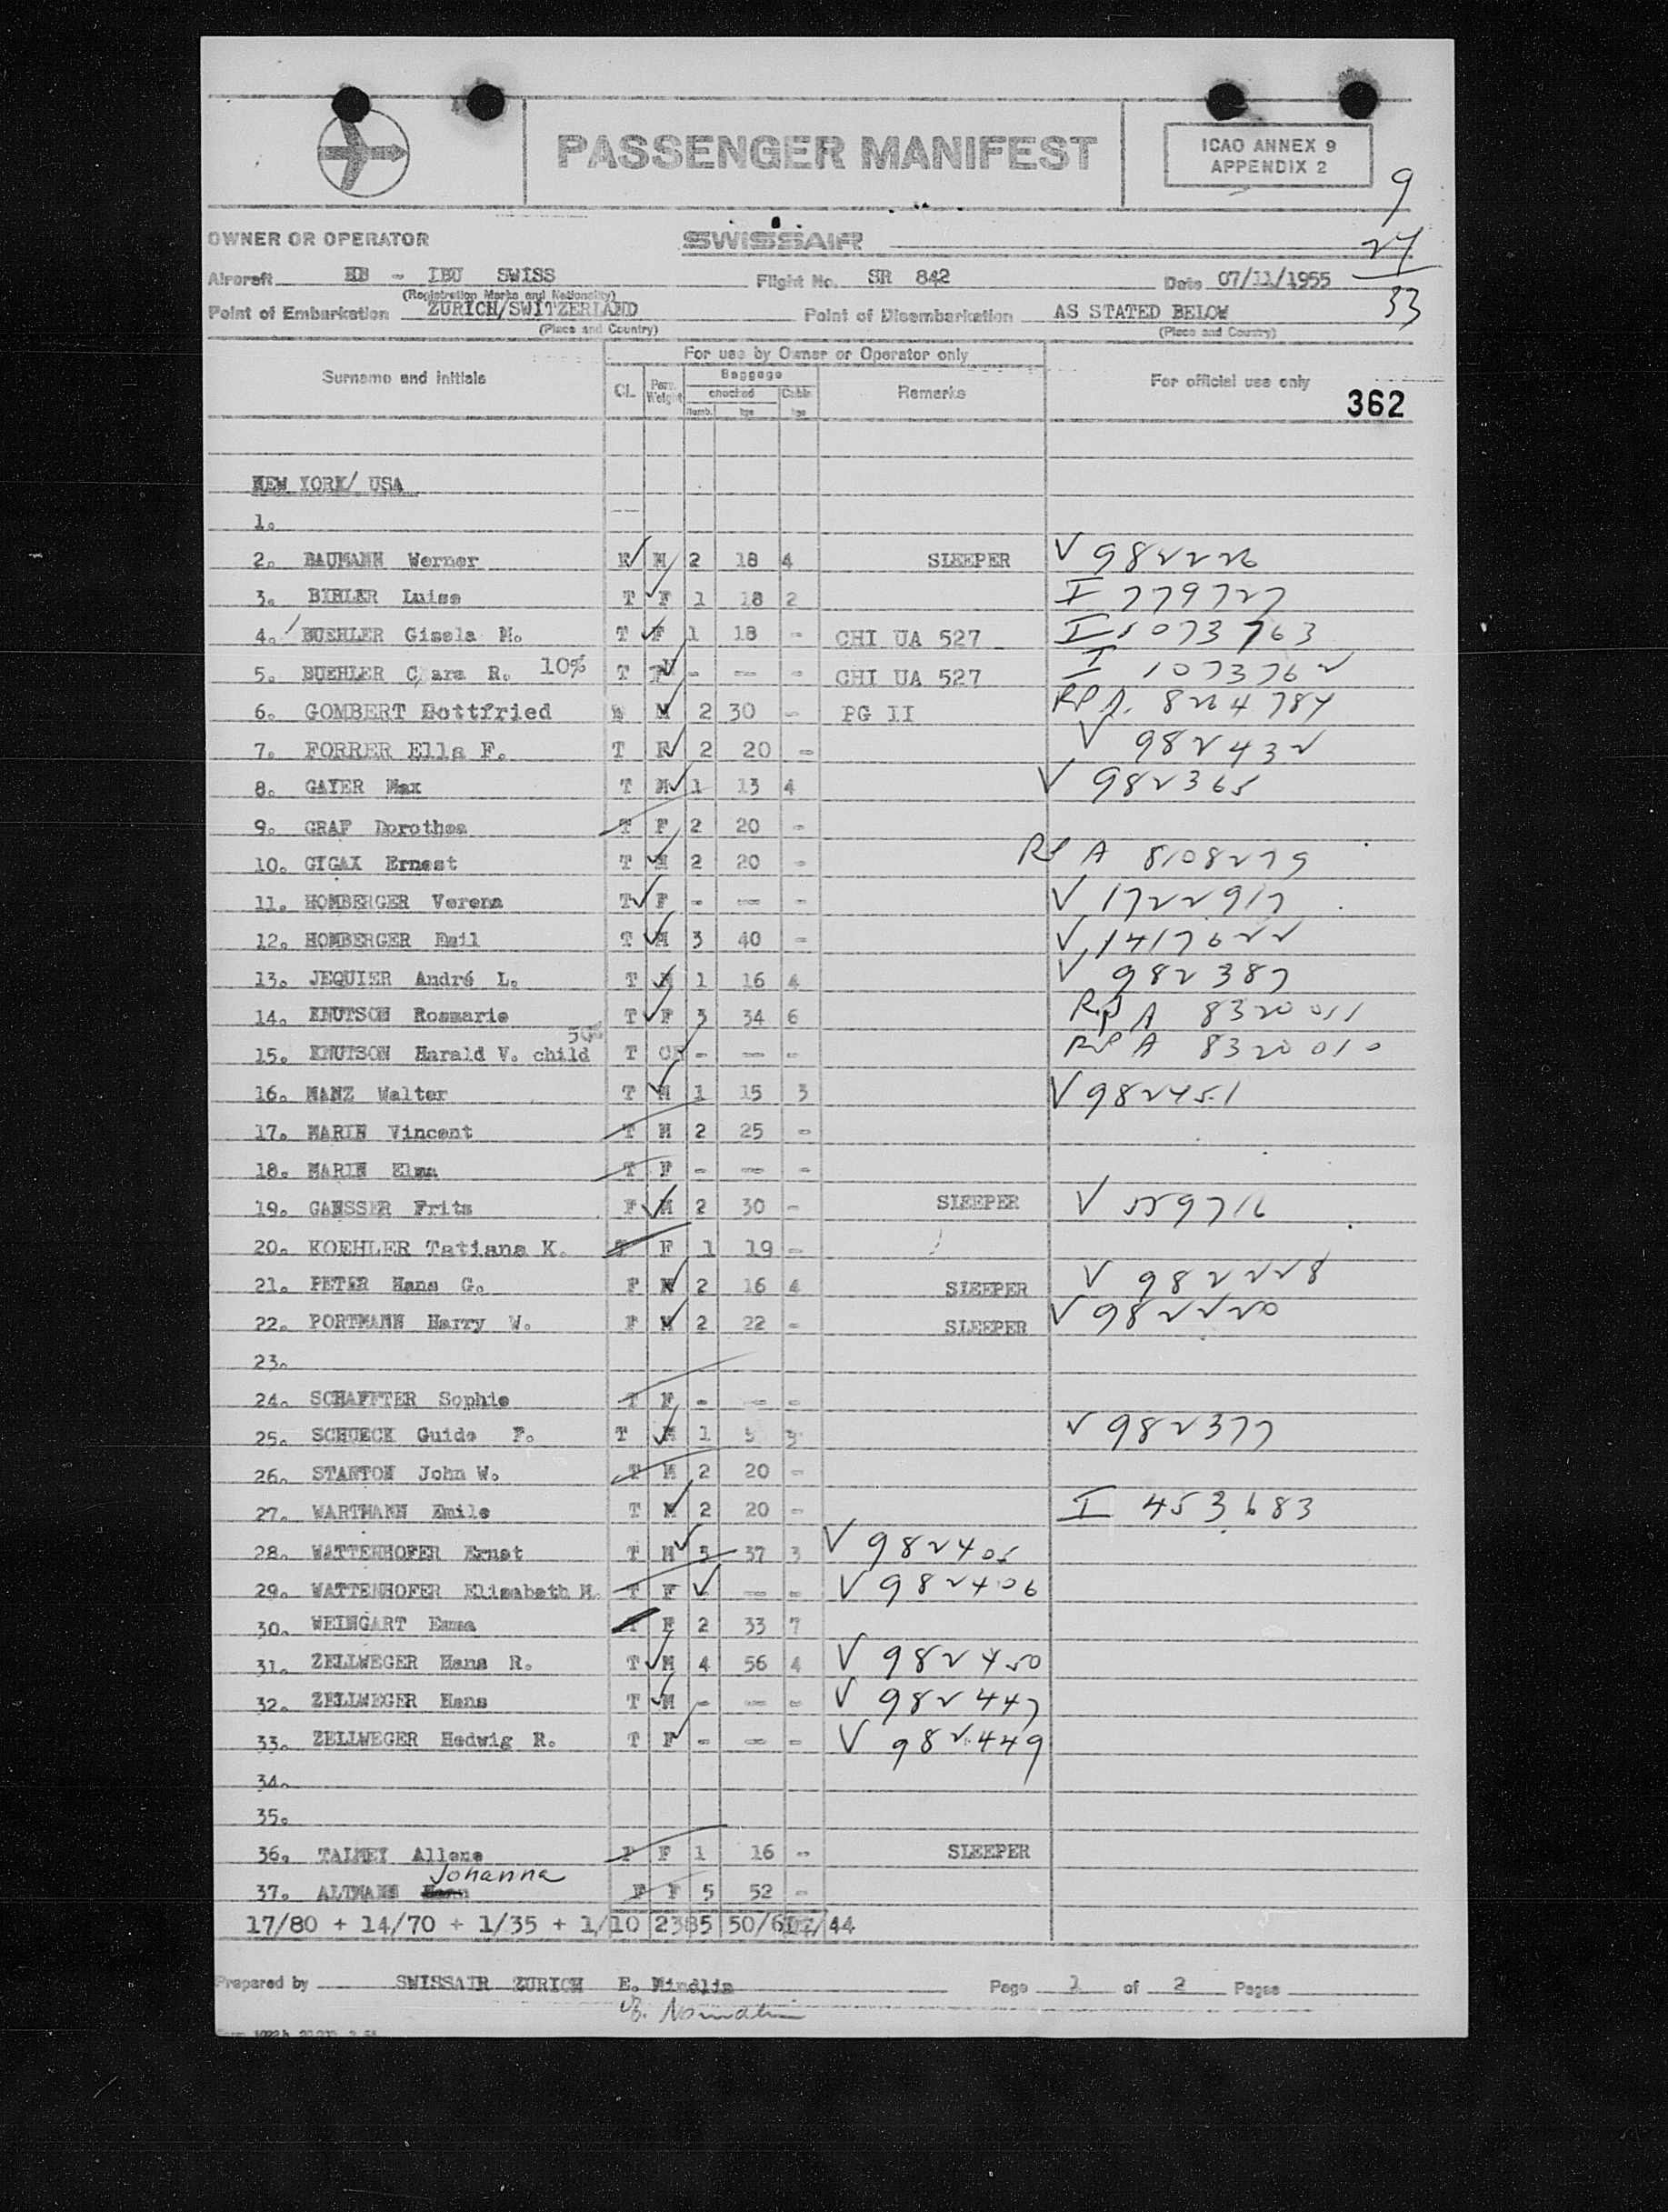 PASSENGER MANIFEST
ICAO ANNEX 9
APPENDIX 2
9
24
33
OWNER OR OPERATOR SWISSAIR
Aircraft HB - IBU SWISS Flight No. SR 842 Date 07/11/1955
(Registration Marks and Nationality)
Point of Embarkation ZURICH/SWITZERLAND Point of Disembarkation AS STATED BELOW
(Place and Country) (Place and Country)
For use by Owner or Operator only
Surname and initials CL. Pers. Weight Baggage checked Numb. kgs Cabin kgs Remarks For official use only
362
NEW YORK/ USA
1.
2. BAUMANN Werner F M 2 18 4 SLEEPER V 982226
3. BIHLER Luise T F 1 18 2 I 779727
4. BUEHLER Gisela M. T F 1 18 - CHI UA 527 I 1073763
5. BUEHLER Clara R. 10% T F - -- - CHI UA 527 I 1073762
6. GOMBERT Gottfried M 2 30 - PG II RP A. 8264784
7. FORRER Ella F. T F 2 20 - V 982432
8. GAYER Max T M 1 13 4 V 982365
9. GRAF Dorothea T F 2 20 -
10. GYGAX Ernest T M 2 20 - RP A 8108279
11. HOMBERGER Verena T F - -- - V 1722917
12. HOMBERGER Emil T M 3 40 - V 1417622
13. JEQUIER André L. T M 1 16 4 V 982387
14. KNUTSON Rosmarie T F 3 34 6 RP A 8320011
50%
15. KNUTSON Harald V. child T CH - -- - RP A 8320010
16. MANZ Walter T M 1 15 3 V 982451
17. MARIN Vincent T M 2 25 -
18. MARIN Elma T F - -- -
19. GANSSER Fritz F M 2 30 - SLEEPER V 559716
20. KOEHLER Tatiana K. T F 1 19 -
21. PETER Hans G. F M 2 16 4 SLEEPER V 982228
22. PORTMANN Harry W. F M 2 22 - SLEEPER V 982220
23.
24. SCHAFFTER Sophie T F - -- -
25. SCHUECK Guido F. T M 1 5 3 V 982377
26. STANTON John W. T M 2 20 -
27. WARTMANN Emile T M 2 20 - I 453683
28. WATTENHOFER Ernst T M 3 37 3 V 982405
29. WATTENHOFER Elisabeth M. T F -- - V 982406
30. WEINGART Emma T F 2 33 7
31. ZELLWEGER Hans R. T M 4 56 4 V 982450
32. ZELLWEGER Hans T M - -- - V 982447
33. ZELLWEGER Hedwig R. T F - -- - V 982449
34.
35.
36. TALMEY Allene F F 1 16 - SLEEPER
Johanna
37. ALTMANN F F 5 52 -
17/80 + 14/70 + 1/35 + 1/10 2385 50/6 /44
Prepared by SWISSAIR ZURICH E. Mindlin Page 1 of 2 Pages